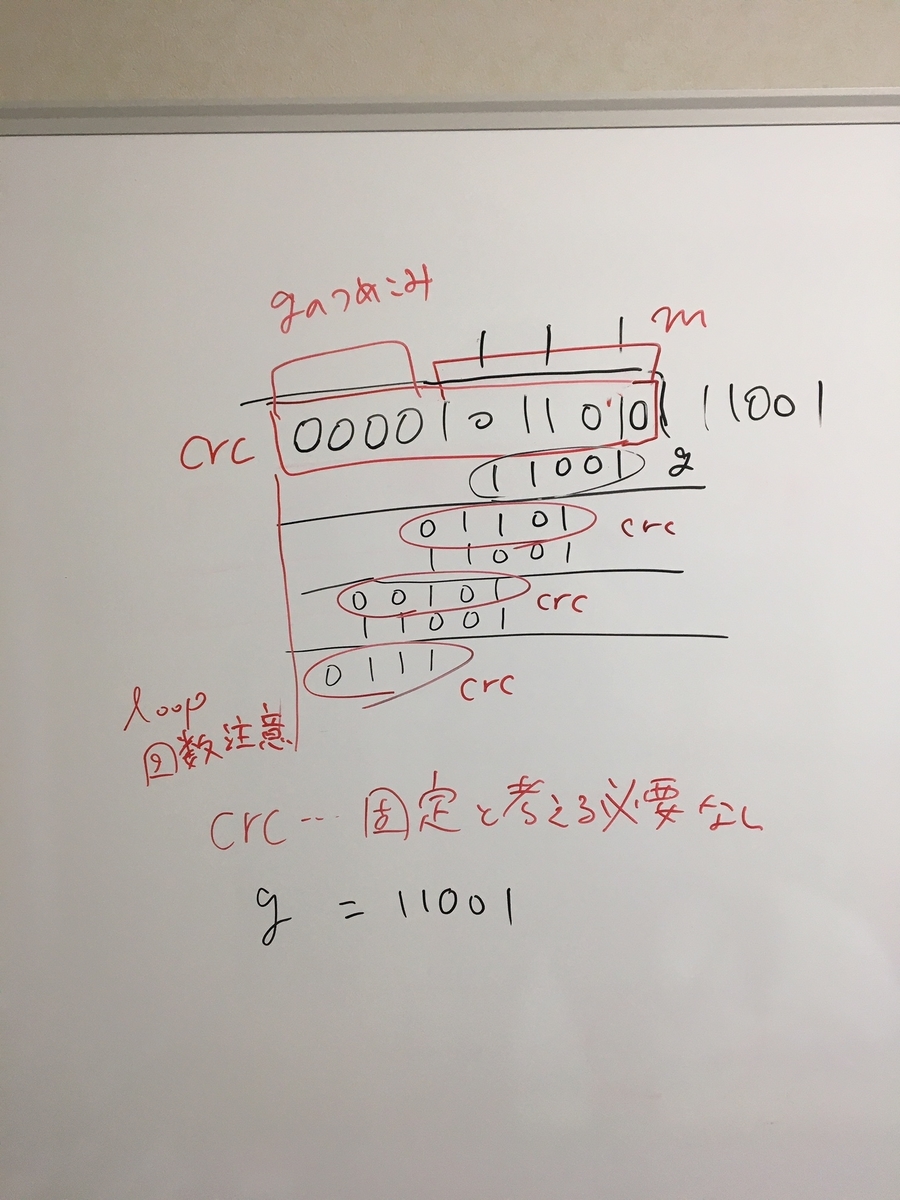 gのつめこみ
m
crc 00001011010 11001
11001 g
01101 crc
11001
00101 crc
11001
0111 crc
loop
回数注意
crc… 固定と考える必要なし
g = 11001